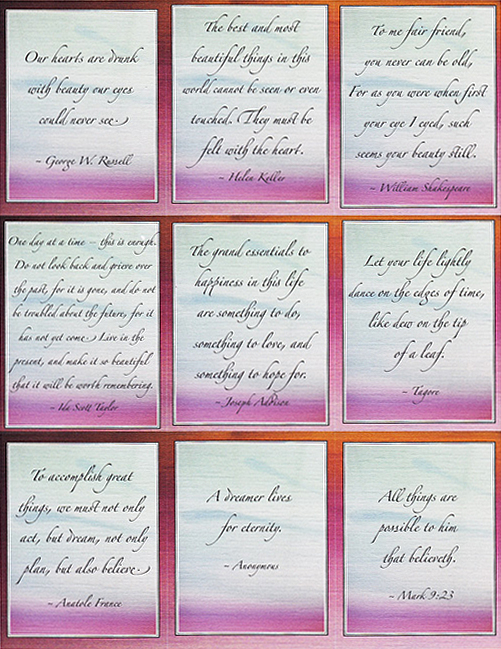 Our hearts are drunk
with beauty our eyes
could never see.
~ George W. Russell
The best and most
beautiful things in this
world cannot be seen or even
touched. They must be
felt with the heart.
~ Helen Keller
To me fair friend,
you never can be old,
For as you were when first
your eye I eyed, such
seems your beauty still.
~ William Shakespeare
One day at a time ~ this is enough.
Do not look back and grieve over
the past, for it is gone, and do not
be troubled about the future, for it
has not yet come. Live in the
present, and make it so beautiful
that it will be worth remembering.
~ Ida Scott Taylor
The grand essentials to
happiness in this life
are something to do,
something to love, and
something to hope for.
~ Joseph Addison
Let your life lightly
dance on the edges of time,
like dew on the tip
of a leaf.
~ Tagore
To accomplish great
things, we must not only
act, but dream, not only
plan, but also believe.
~ Anatole France
A dreamer lives
for eternity.
~ Anonymous
All things are
possible to him
that believeth.
~ Mark 9:23